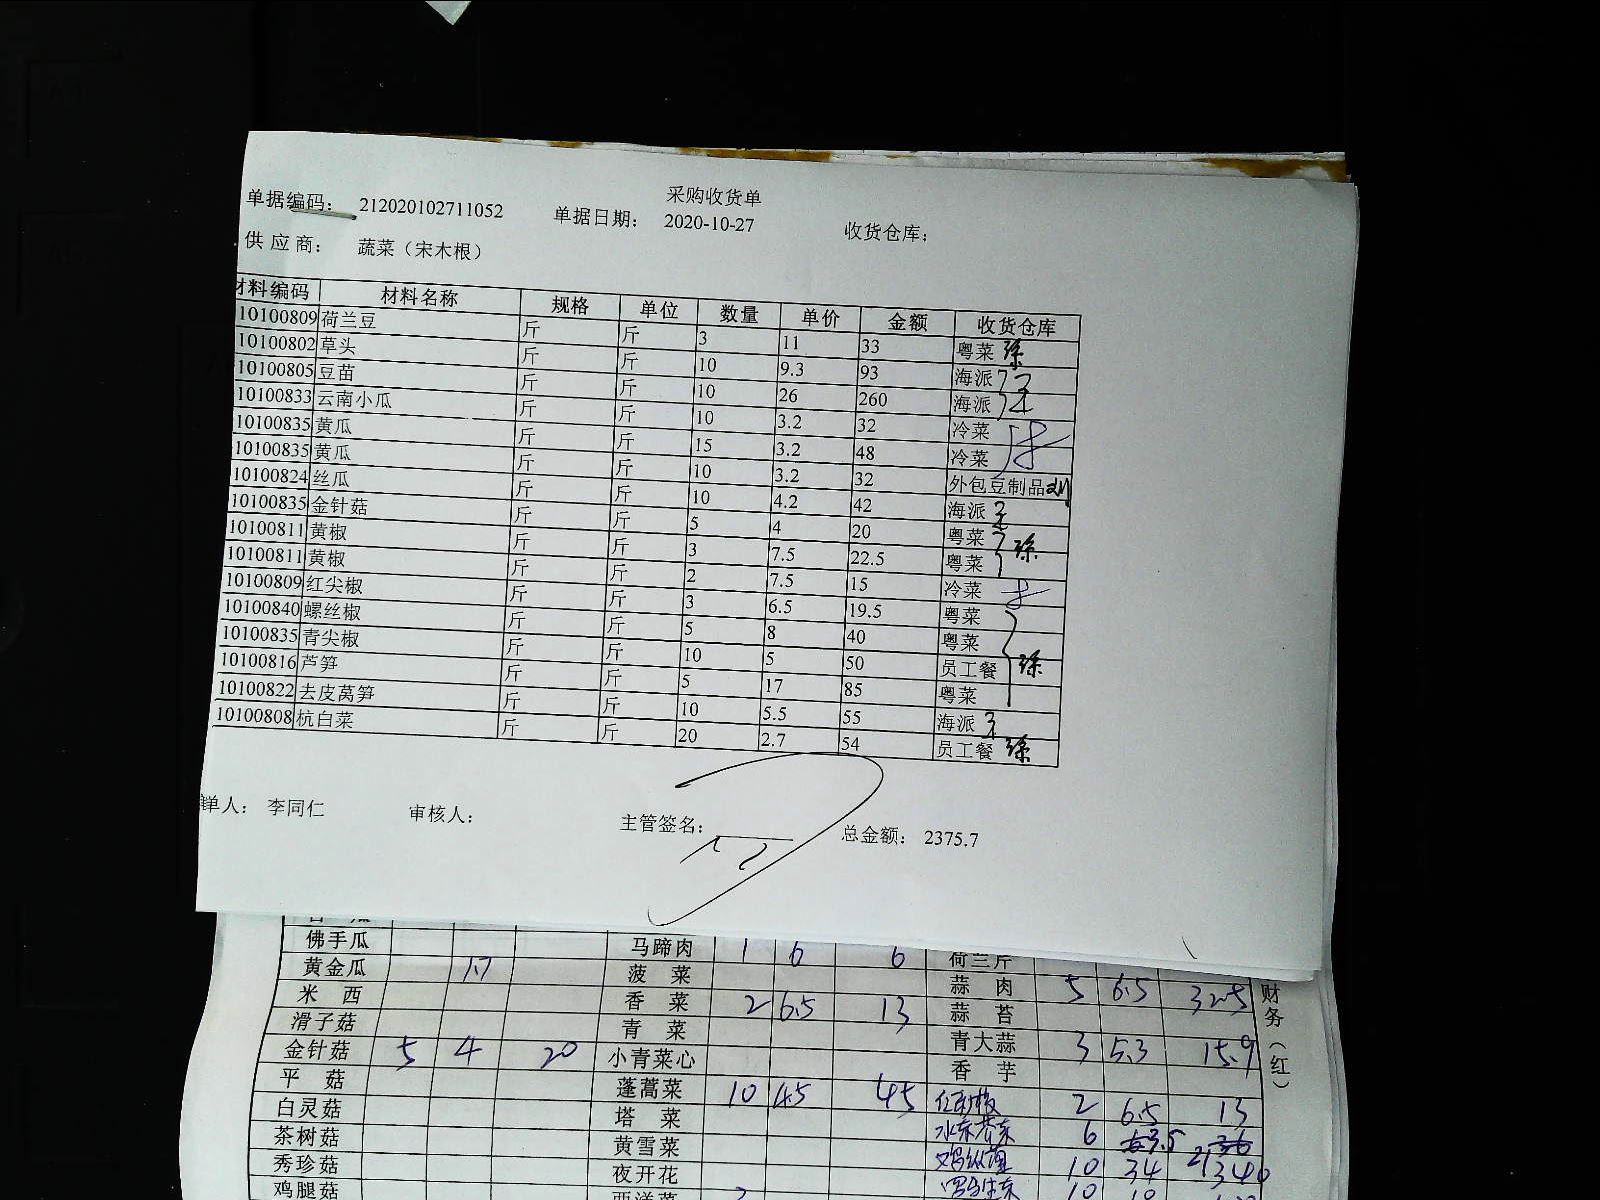 采购收货单
单据编码： 212020102711052 单据日期： 2020-10-27 收货仓库：
供应商： 蔬菜（宋木根）
材料编码 材料名称 规格 单位 数量 单价 金额 收货仓库
10100809 荷兰豆 斤 斤 3 11 33 粤菜 徐
10100802 草头 斤 斤 10 9.3 93 海派
10100805 豆苗 斤 斤 10 26 260 海派
10100833 云南小瓜 斤 斤 10 3.2 32 冷菜
10100835 黄瓜 斤 斤 15 3.2 48 冷菜
10100835 黄瓜 斤 斤 10 3.2 32 外包豆制品
10100824 丝瓜 斤 斤 10 4.2 42 海派
10100835 金针菇 斤 斤 5 4 20 粤菜
10100811 黄椒 斤 斤 3 7.5 22.5 粤菜 徐
10100811 黄椒 斤 斤 2 7.5 15 冷菜
10100809 红尖椒 斤 斤 3 6.5 19.5 粤菜
10100840 螺丝椒 斤 斤 5 8 40 粤菜
10100835 青尖椒 斤 斤 10 5 50 员工餐 徐
10100816 芦笋 斤 斤 5 17 85 粤菜
10100822 去皮莴笋 斤 斤 10 5.5 55 海派
10100808 杭白菜 斤 斤 20 2.7 54 员工餐 徐
单人： 李同仁 审核人： 主管签名： 总金额： 2375.7
佛手瓜 马蹄肉 1 6 6 荷兰斤
黄金瓜 1.7 菠菜 蒜肉 5 6.5 32.5
米西 香菜 2 6.5 13 蒜苔
滑子菇 青菜 青大蒜 3 5.3 15.9
金针菇 5 4 20 小青菜心 香芋
平菇 蓬蒿菜 10 4.5 45 2 6.5 13
白灵菇 塔菜 6 3.5 21
茶树菇 黄雪菜 10 34 340
秀珍菇 夜开花 10
鸡腿菇 西洋菜
财务（红）